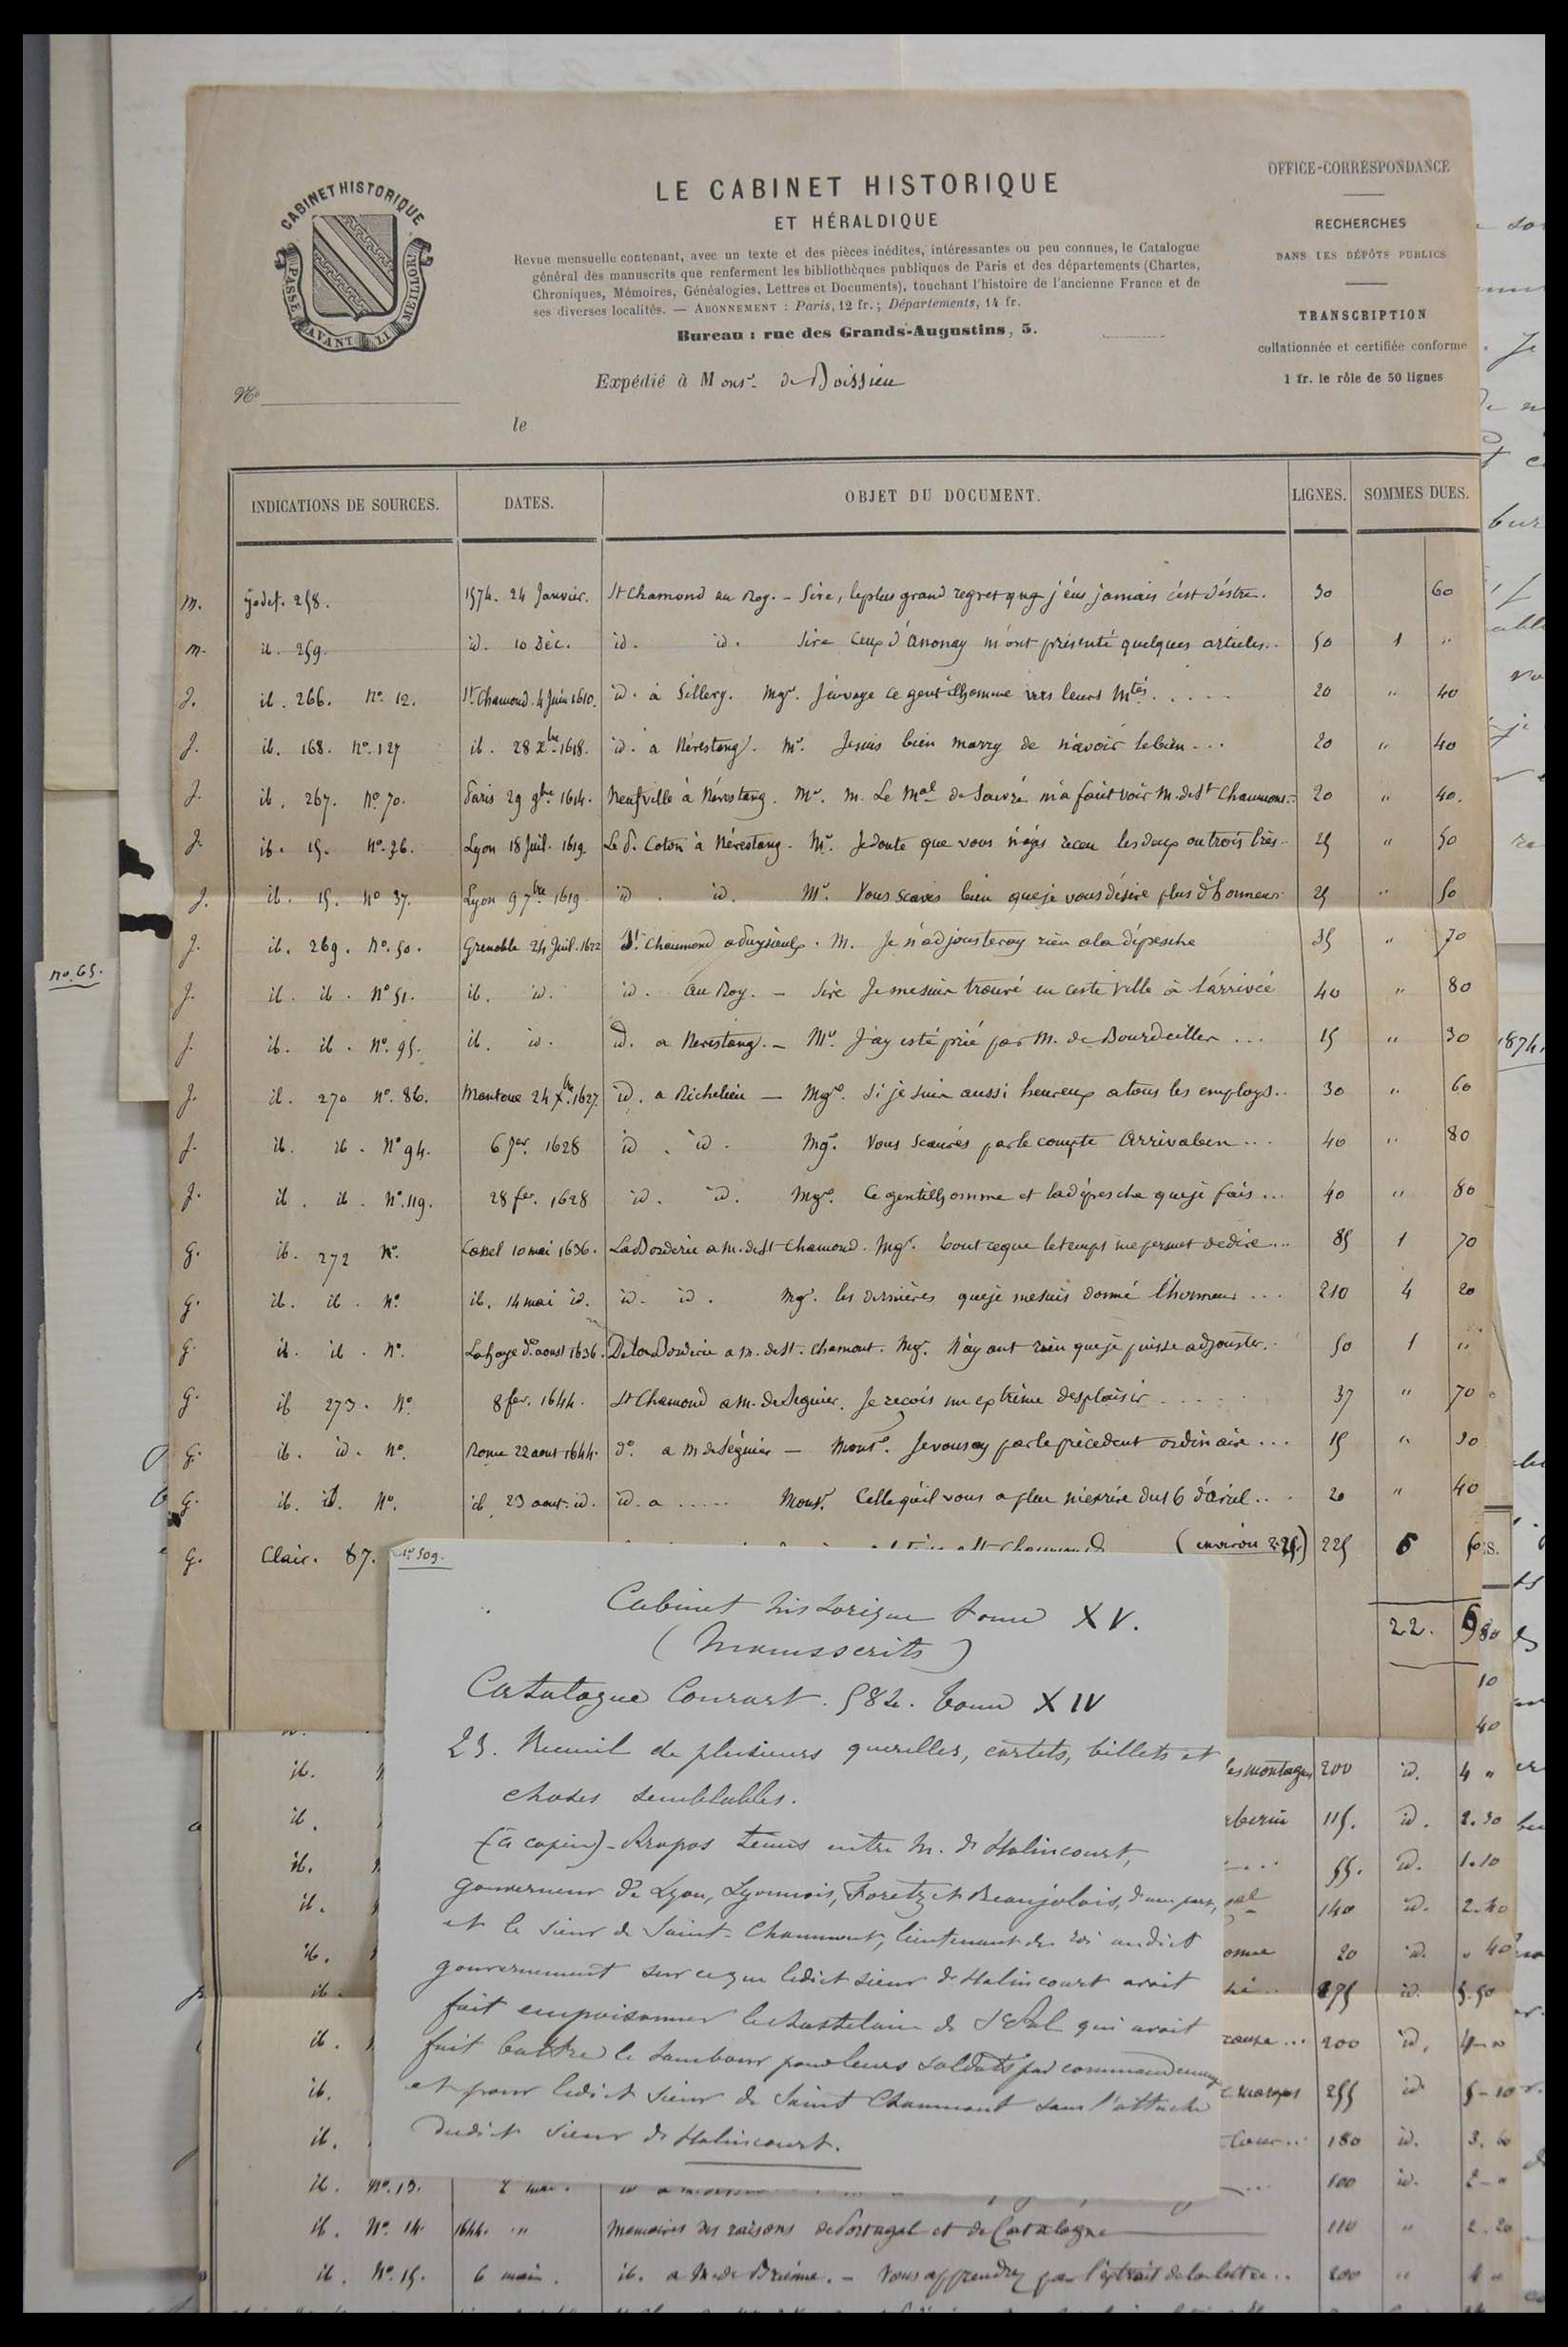 CABINET HISTORIQUE
PASSE AVANT LI MEILLOR
LE CABINET HISTORIQUE
ET HÉRALDIQUE
Revue mensuelle contenant, avec un texte et des pièces inédites, intéressantes ou peu connues, le Catalogue
général des manuscrits que renferment les bibliothèques publiques de Paris et des départements (Chartes,
Chroniques, Mémoires, Généalogies, Lettres et Documents), touchant l'histoire de l'ancienne France et de
ses diverses localités. — ABONNEMENT : Paris, 12 fr.; Départements, 14 fr.
Bureau : rue des Grands-Augustins, 5.
OFFICE-CORRESPONDANCE
RECHERCHES
DANS LES DÉPÔTS PUBLICS
TRANSCRIPTION
collationnée et certifiée conforme
1 fr. le rôle de 50 lignes
Expédié à Monsr. de Boissieu
No
le
INDICATIONS DE SOURCES. DATES. OBJET DU DOCUMENT. LIGNES. SOMMES DUES.
m. godef. 258. 1574. 24 Janvier. St Chamond au Roy. - Sire, le plus grand regret que j'éus jamais c'est d'éstre. 30 60
m. ib. 259. id. 10 Déc. id. id. Sire Ceux d'Anonay m'ont présenté quelques articles.. 50 1 "
J. ib. 266. No. 12. St. Chamond. 4 Juin 1610. id. à Sillery. Mgr. J'envoye ce gentilhomme vers leurs Mtés. . . . . 20 " 40
J. ib. 168. No. 127 ib. 28 Xbre 1618. id. à Nérestang. Mr. Je suis bien marry de n'avoir le bien ... 20 " 40
J. ib. 267. No. 70. Paris 29 9bre 1614. Neufville à Nérestang. Mr. M. Le Mal de Souvré m'a fait voir M. de St Chaumont.. 20 " 40.
J. ib. 15. No. 36. Lyon 18 Juil. 1619. Le P. Coton à Nérestang. Mr. Je doute que vous n'ayés receu les deux ou trois lres.. 25 " 50
J. ib. 15. No 37. Lyon 9 7bre 1619. id. id. Mr. Vous scavés bien que je vous désire plus d'honneur. 25 " 50
J. ib. 269. No. 50. Grenoble 24 Juil. 1622 St. Chaumond a Puysieulx. M. Je n'adjousteray rien a la dépesche 35 " 70
J. ib. ib. No 51. ib. id. id. au Roy. - Sire Je me suis trouvé en ceste ville à l'arrivée 40 " 80
J. ib. ib. No. 95. ib. id. id. a Nerestang. - Mr. J'ay esté prié par M. de Bourdeilles ... 15 " 30
J. ib. 270 No. 86. Mantoue 24 Xbre. 1627. id. a Richelieu - Mgr. Si je suis aussi heureux a tous les employs.. 30 " 60
J. ib. ib. No 94. 6 Jer. 1628 id. id. Mgr. Vous scaurés par le compte Arrivaben ... 40 " 80
J. ib. ib. No. 119. 28 fer. 1628 id. id. Mgr. Ce gentilhomme et la dépesche que je fais ... 40 " 80
G. ib. 272 No. Cassel 10 mai 1636. La Borderie a M. de St Chamond. Mgr. Tout ce que le temps me permet de dire ... 85 1 70
G. ib. ib. No. ib. 14 mai id. id. id. Mgr. les dernières que je me suis donné l'honneur ... 210 4 20
G. ib. ib. No. La haye aoust 1636. De la Borderie a M. de St. Chamont. Mgr. N'ayant rien que je puisse adjouster.. 50 1 "
G. ib 273. No 8 fer. 1644. St Chamond a M. de Seguier. Je reçois un extrème desplaisir . . . . 37 " 70
G. ib. id. No. Rome 22 aout 1644. do. a M de Séguier - Monsr. Je vous ay par le précédent ordinaire ... 15 " 30
G. ib. id. No. ib. 23 aout. id. id. a ..... Monsr. Celle qu'il vous a pleu m'escrire du 16 d'avril ... 20 " 40
G. Clair. 87. (environ 225) 225 6
22.
no. 65.
1874.
No 509.
Cabinet historique tome XV.
(Manuscrits)
Catalogue Conrart. 582. Tome XIV
25. Recueil de plusieurs querelles, cartels, billets et
choses semblables.
(à copier) - Propos tenus entre M. de Halincourt,
gouverneur de Lyon, Lyonnois, Foretz et Beaujolois, d'une part,
et le sieur de Saint-Chaumont, lieutenant du roi audict
gouvernement sur ce que ledict sieur de Halincourt avoit
fait emprisonner le chastelain de St Pal qui avoit
fait battre le tambour pour leurs soldats par commandement
et pour ledict sieur de Saint Chaumont sans l'attache
dudict sieur de Halincourt.
ib. les montagnes 200 id. 4 "
ib. 115. id. 2.30
ib. 55. id. 1.10
ib. 140 id. 2.80
ib. 20 id. " 40
ib. 275 id. 5.50
ib. 200 id. 4-"
ib. 255 id. 5-10
ib. 180 id. 3.60
ib. No. 13. 100 id. 2-"
ib. No. 14. 1644. " Memoires des raisons de Portugal et de Catalogne 110 " 2.20
ib. No. 15. 6 main. ib. a M. de Brienne. - Vous apprendrez par l'extrait de la lettre .. 200 " 4 "